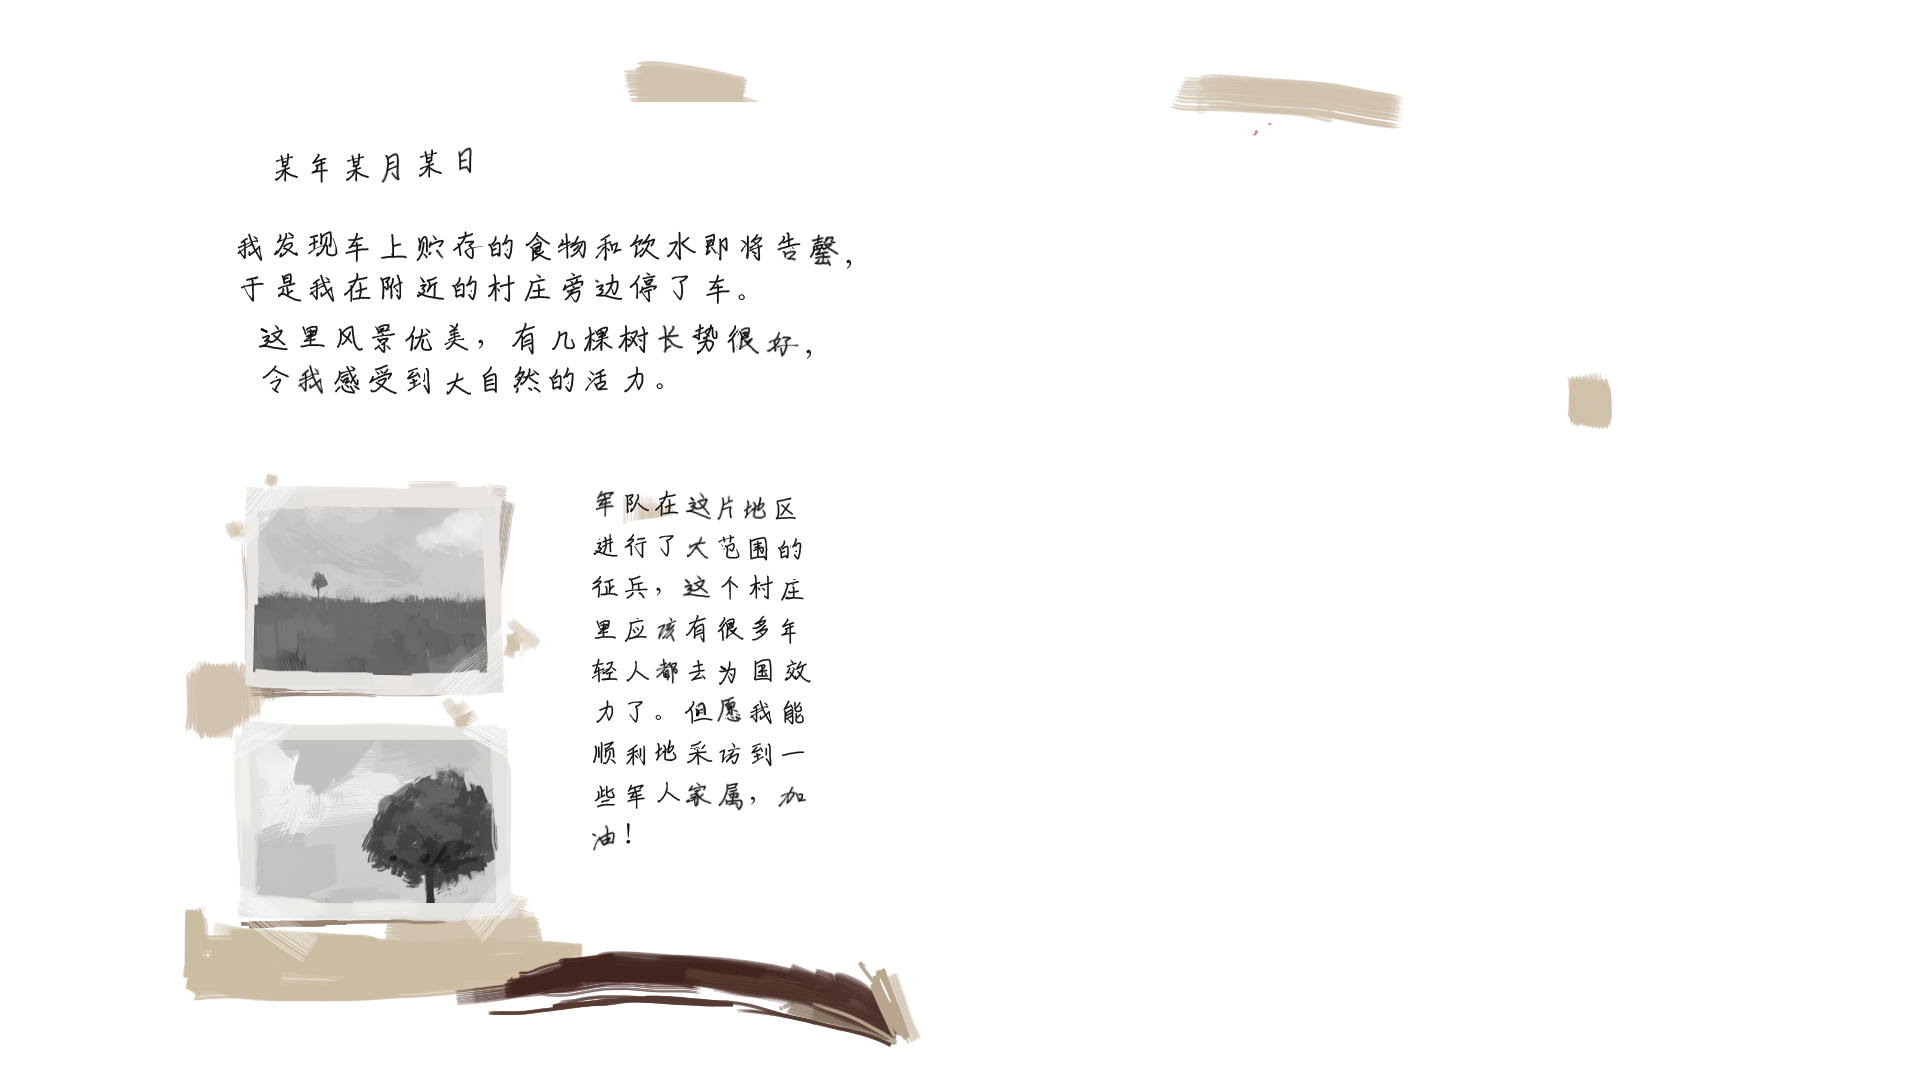 某年某月某日
我发现车上贮存的食物和饮水即将告罄，
于是我在附近的村庄旁边停了车。
这里风景优美，有几棵树长势很好，
令我感受到大自然的活力。
军队在这片地区
进行了大范围的
征兵，这个村庄
里应该有很多年
轻人都去为国效
力了。但愿我能
顺利地采访到一
些军人家属，加
油！